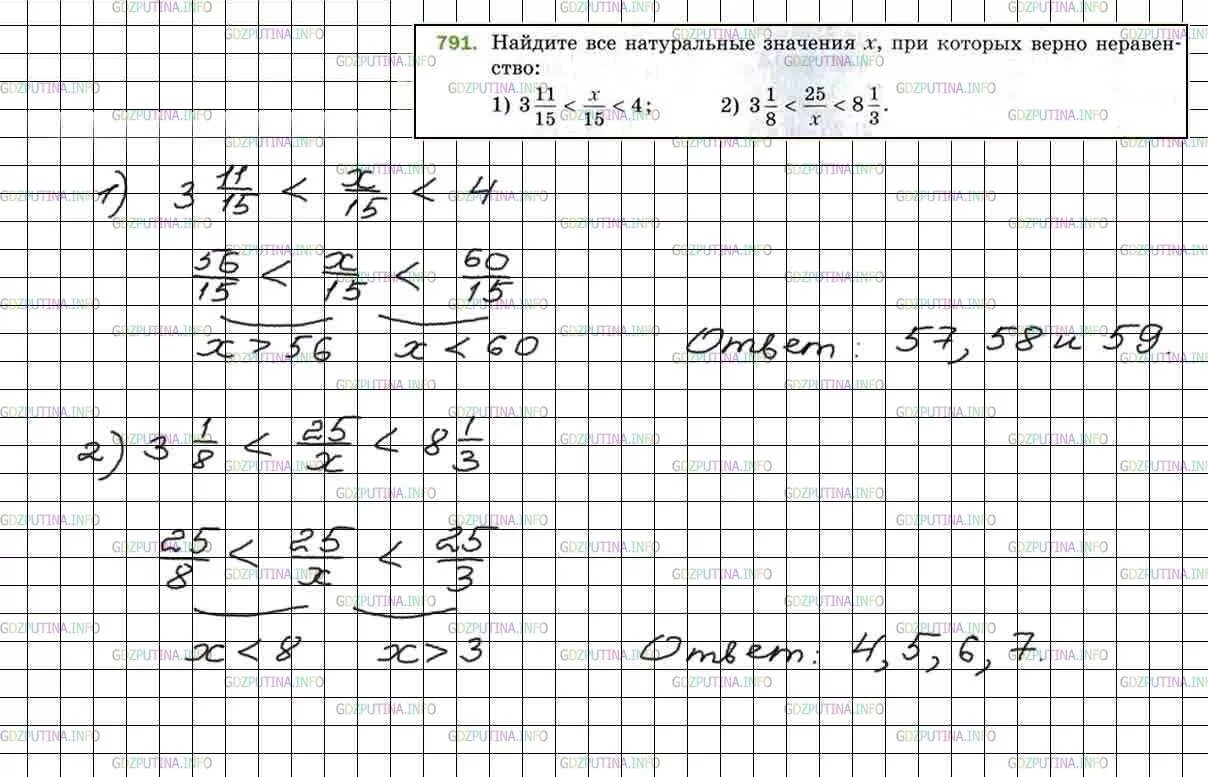 791. Найдите все натуральные значения x, при которых верно неравен-
ство:
1) 3 11/15 < x/15 < 4; 2) 3 1/8 < 25/x < 8 1/3.
1) 3 11/15 < x/15 < 4
56/15 < x/15 < 60/15
x > 56 x < 60 Ответ: 57, 58 и 59.
2) 3 1/8 < 25/x < 8 1/3
25/8 < 25/x < 25/3
x < 8 x > 3 Ответ: 4, 5, 6, 7.
GDZPUTINA.INFO